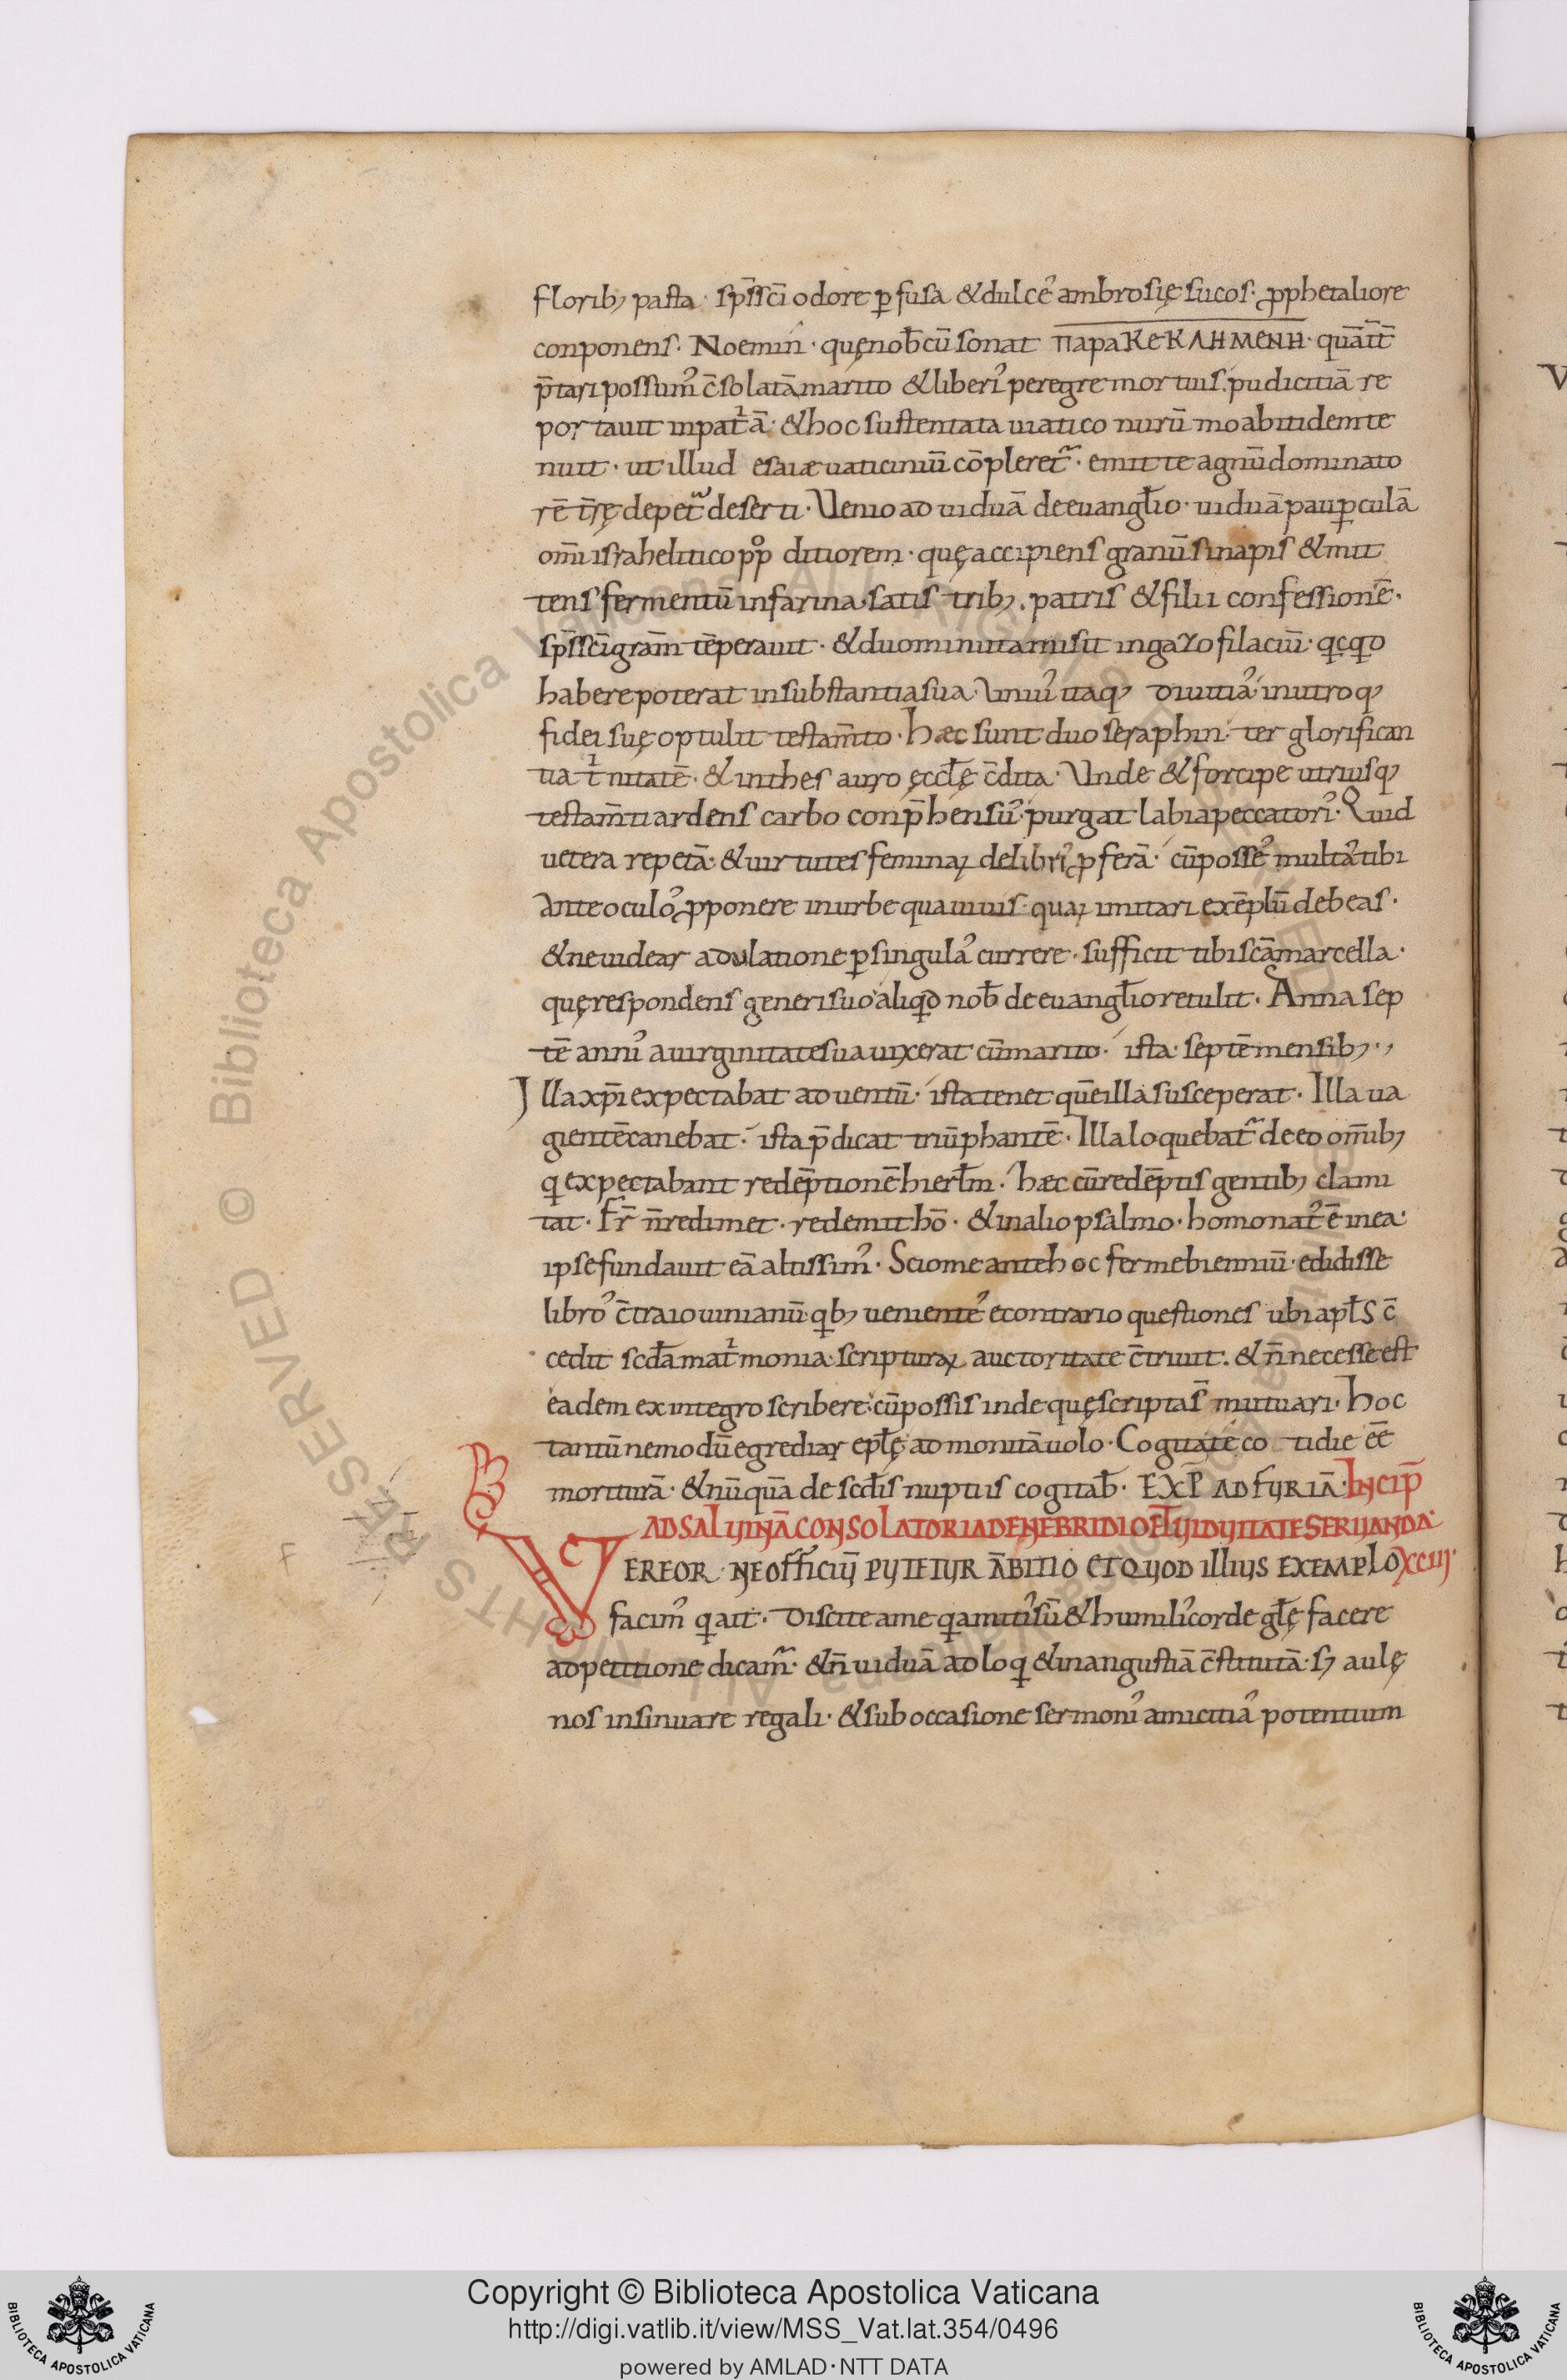 floribꝫ pasta· sp̅s sc̅i odore ꝑfusa &dulce᾽ ambrosię sucos· ꝓphetali ore
conponens· Noemin· quę nob̅ cū sonat παρακεκλημενη· quā it̅
p̅tari possum᾽ c̅solatā marito &liberi᾽ peregre mortuis· pudicitiā re
portauit in pat͛ā· &hoc sustentata uiatico nurū moabitidem te
nuit· ut illud esaiæ uaticiniū cōpleret᷑· emitte agnū dominato
rē tr̅ę de pet͛ deserti· Venio ad uiduā de euangl̅io· uiduā pauꝑculā
om̅i israhelitico pp̊ ditiorem· quę accipiens granū sinapis &mit
tens fermentū in farina satis tribꝫ· patris &filii confessionē·
sp̅s sc̅i gram̅ tēperauit· &duo minuta misit in gazofilaciū· qcqd
habere poterat in substantia sua· Vniu᾽ itaqꝫ diuitia᾽ in utroqꝫ
fidei suę optulit testam̅to· hæc sunt duo seraphin· ter glorifican
tia t͛nitatē· &in thesauro ęccl̅ę c̅dita· Vnde &forcipe utriusqꝫ
testam̅ti ardens carbo conp̅hensu᾽· purgat labia peccatori᾽· Quid
uetera repetā· &uirtutes feminaꝝ de libri᾽ ꝓferā· cū posse᾽ multa᾽ tibi
ante oculo᾽ ꝓponere in urbe qua uiuis· quaꝝ imitari exēplū debeas·
&ne uidear adulatione ꝑ singula᾽ currere· sufficit tibi sc̅a marcella·
quę respondens generi suo aliqd nob̅ de euangl̅io retulit· Anna sep
tē anni᾽ a uirginitate sua uixerat cū marito· ista· septē mensibꝫ·,
Illa xp̅i expectabat aduentū· ista tenet quē illa susceperat· Illa ua
gientē canebat· ista p̅dicat triūphantē· Illa loquebat᷑ de eo om̅ibꝫ
q expectabant redēptionē hierl̅m· hæc cū redēptis gentibꝫ clami
tat· Fr̅ n̅ redimet· redemit hō· &in alio psalmo· homo nat᾽ ē in ea·
ipse fundauit eā altissim᾽· Scio me ante hoc ferme bienniū· edidisse
libro᾽ c̅tra iouinianū· qbꝫ uenientes᾽ e contrario questiones ubi apl̅s c̅
cedit scd̅a mat͛monia· scripturaꝝ auctoritate c̅triuit· &n̅ necesse est
eadem ex integro scribere· cū possis inde quę scripta s̅ mutuari· hoc
tantū ne modū egrediar epl̅ę· admonitā uolo· Cogita te cotidie ee̅
moriturā· &nūquā de scd̅is nuptiis cogitab̅· EXP̅ AD FURIĀ· INCIP̅
AD SALUINĀ CONSOLATORIA DE NEBRIDIO ET UIDUITATE SERUANDA·
VEREOR· NE OFFICIŪ PUTETUR ĀBITIO ET QUOD ILLIUS EXEMPLO XCIII·
facim᾽ q ait· Discite a me q a miti᾽ sū &humili᾽ corde gl̅ę facere
ad petitione dicam᷑· &n̅ uiduā adloq &in angustiā c̅stitutā· sꝫ aulę
nos insinuare regali· &sub occasione sermoni᾽ amicitia᾽ potentium
F
© Biblioteca Apostolica Vaticana ALL RIGHTS RESERVED
Copyright © Biblioteca Apostolica Vaticana
http://digi.vatlib.it/view/MSS_Vat.lat.354/0496
powered by AMLAD·NTT DATA
BIBLIOTECA APOSTOLICA VATICANA
BIBLIOTECA APOSTOLICA VATICANA